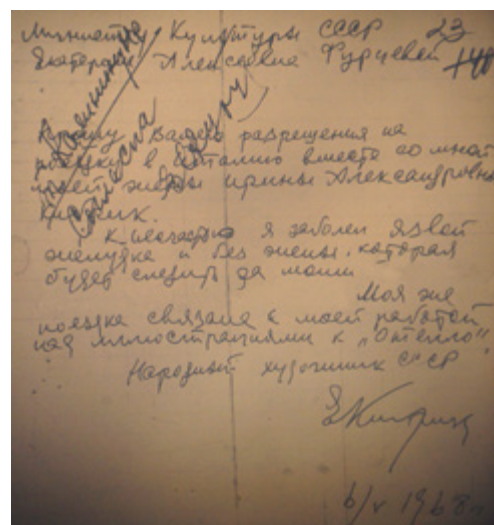 Министру Культуры СССР 23
Екатерине Алексеевне Фурцевой
Прошу Вашего разрешения на
поездку в Италию вместе со мной
моей жены Ирины Александровны
Кибрик.
К несчастью я заболел язвой
желудка и без жены, которая
будет следить за моим
Моя же
поездка связана с моей работой
над иллюстрациями к „Отелло"
Народный художник СССР
ЕКибрик
6/V 1968 г.